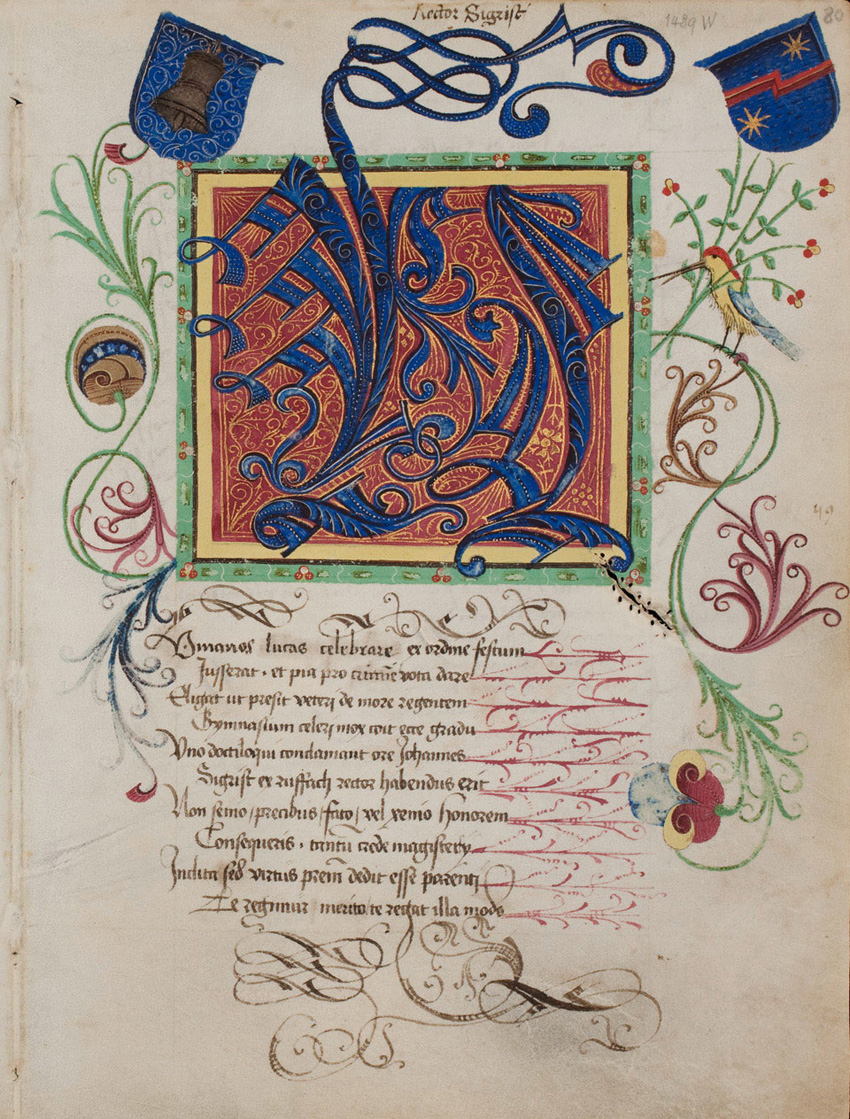 Rector Sigrist
1489 W
80
Vmanos lucas celebrare ex ordine festum
Jusserat · et pia pro vota dare
Eligat ut presit veteri de more regentem
Gymnasium celeri mox coit ecce gradu
Vno doctiloqui conclamant ore Johannes
Sigrist ex ruffach rector habendus erit
Non senio / precibus / fato / vel xenio honorem
Consequeris · tantū crede magisterij
Indita sed virtus premī dedit esse parenti
Te regimur merito te regat illa modis